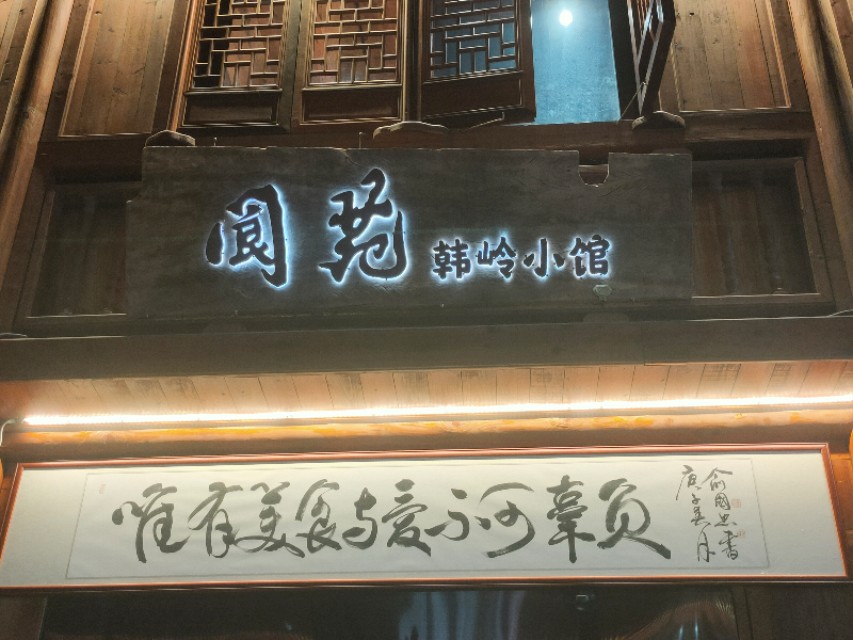 阆苑 韩岭小馆
唯有美食与爱不可辜负
庚子年月
俞国忠书